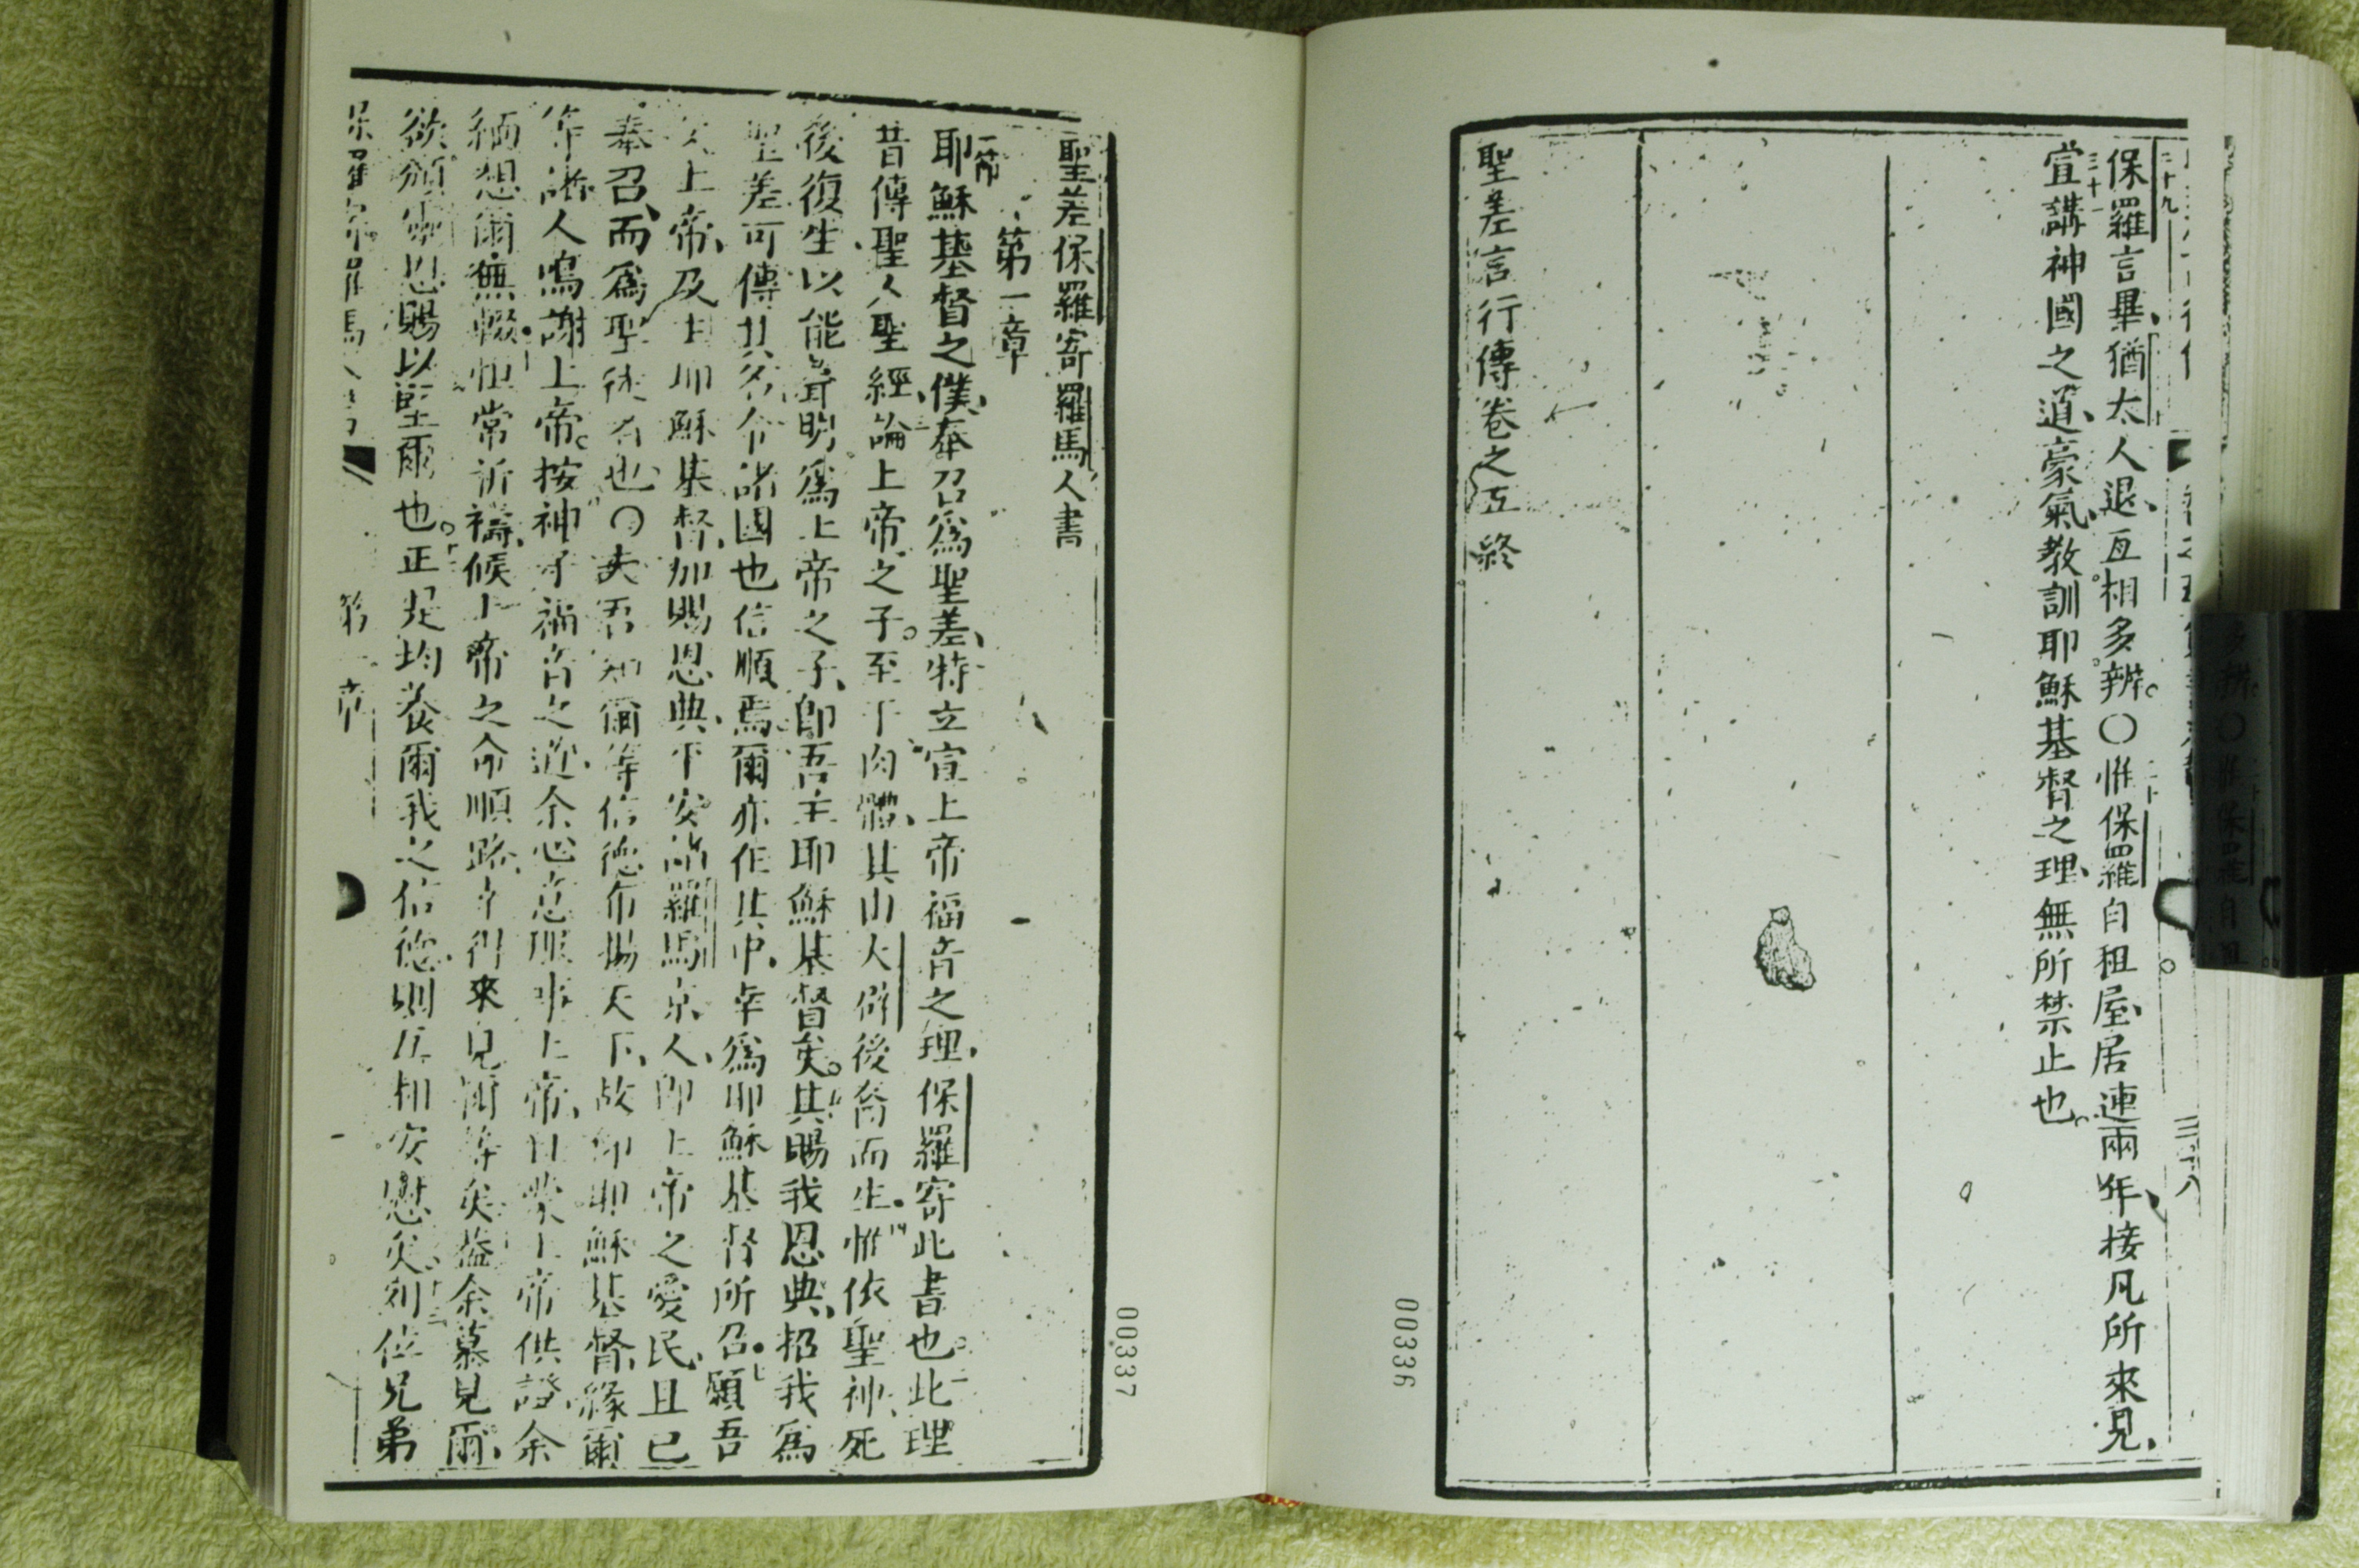 保羅言畢、猶太人退、互相多辨。〇惟保羅自租屋、居連兩年、接凡所來見、
宣講神國之道、豪氣、教訓耶穌基督之理、無所禁止也
聖差言行傳卷之五終
三十八
00336
聖差保羅寄羅馬人書
第一章
耶穌基督之僕、奉召爲聖差、特立宣上帝福音之理、保羅寄此書也。此理
昔傳聖人聖經、論上帝之子。至于肉體、其由大辟後裔而生。惟依聖神、死
後復生、以能聲明爲上帝之子、即吾主耶穌基督矣。其賜我恩典、招我爲
聖差、可傳其名、令諸國也信順焉。爾亦在其中、幸爲耶穌基督所召。願吾
父上帝、及主耶穌基督、加賜恩典、平安、諸羅馬京人、即上帝之愛民、且已
奉召、而爲聖徒者也〇夫吾知爾等信德布揚天下、故仰耶穌基督、緣爾
等諸人鳴謝上帝。按神子福音之道、余心意服事上帝、且蒙上帝供證、余
緬想爾無輟、恒常祈禱、候上帝之命順路、幸得來見爾等矣。蓋余慕見爾、
欲頒恩賜以堅爾也。正是均養爾我之信德、則互相安慰矣、列位兄弟
保羅寄羅馬人書 第一章
00337